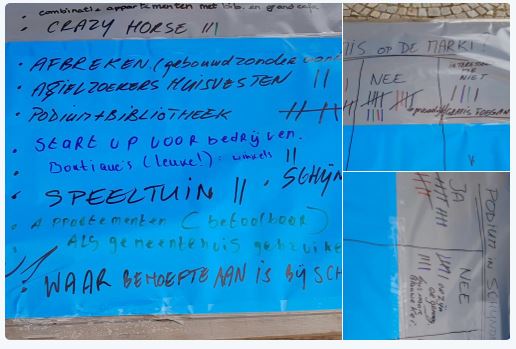 combinatie appartementen met bib. en grandcafe
· CRAZY HORSE |||
· AFBREKEN (gebouwd zonder
· AZIELZOEKERS HUISVESTEN ||
· PODIUM + BIBLIOTHEEK
· START UP VOOR bedrijven.
Boutique's (leuke!): winkels ||
· SPEELTUIN || · SCHIJN
· Appartementen (betaalbaar)
ALS gemeentehuis gebruike
· WAAR BEHOEFTE AAN IS BIJ SCH
MIS OP DE MARKT?
NEE
NIET
GRATIS TOEGAN
PODIUM IN
JA
NEE